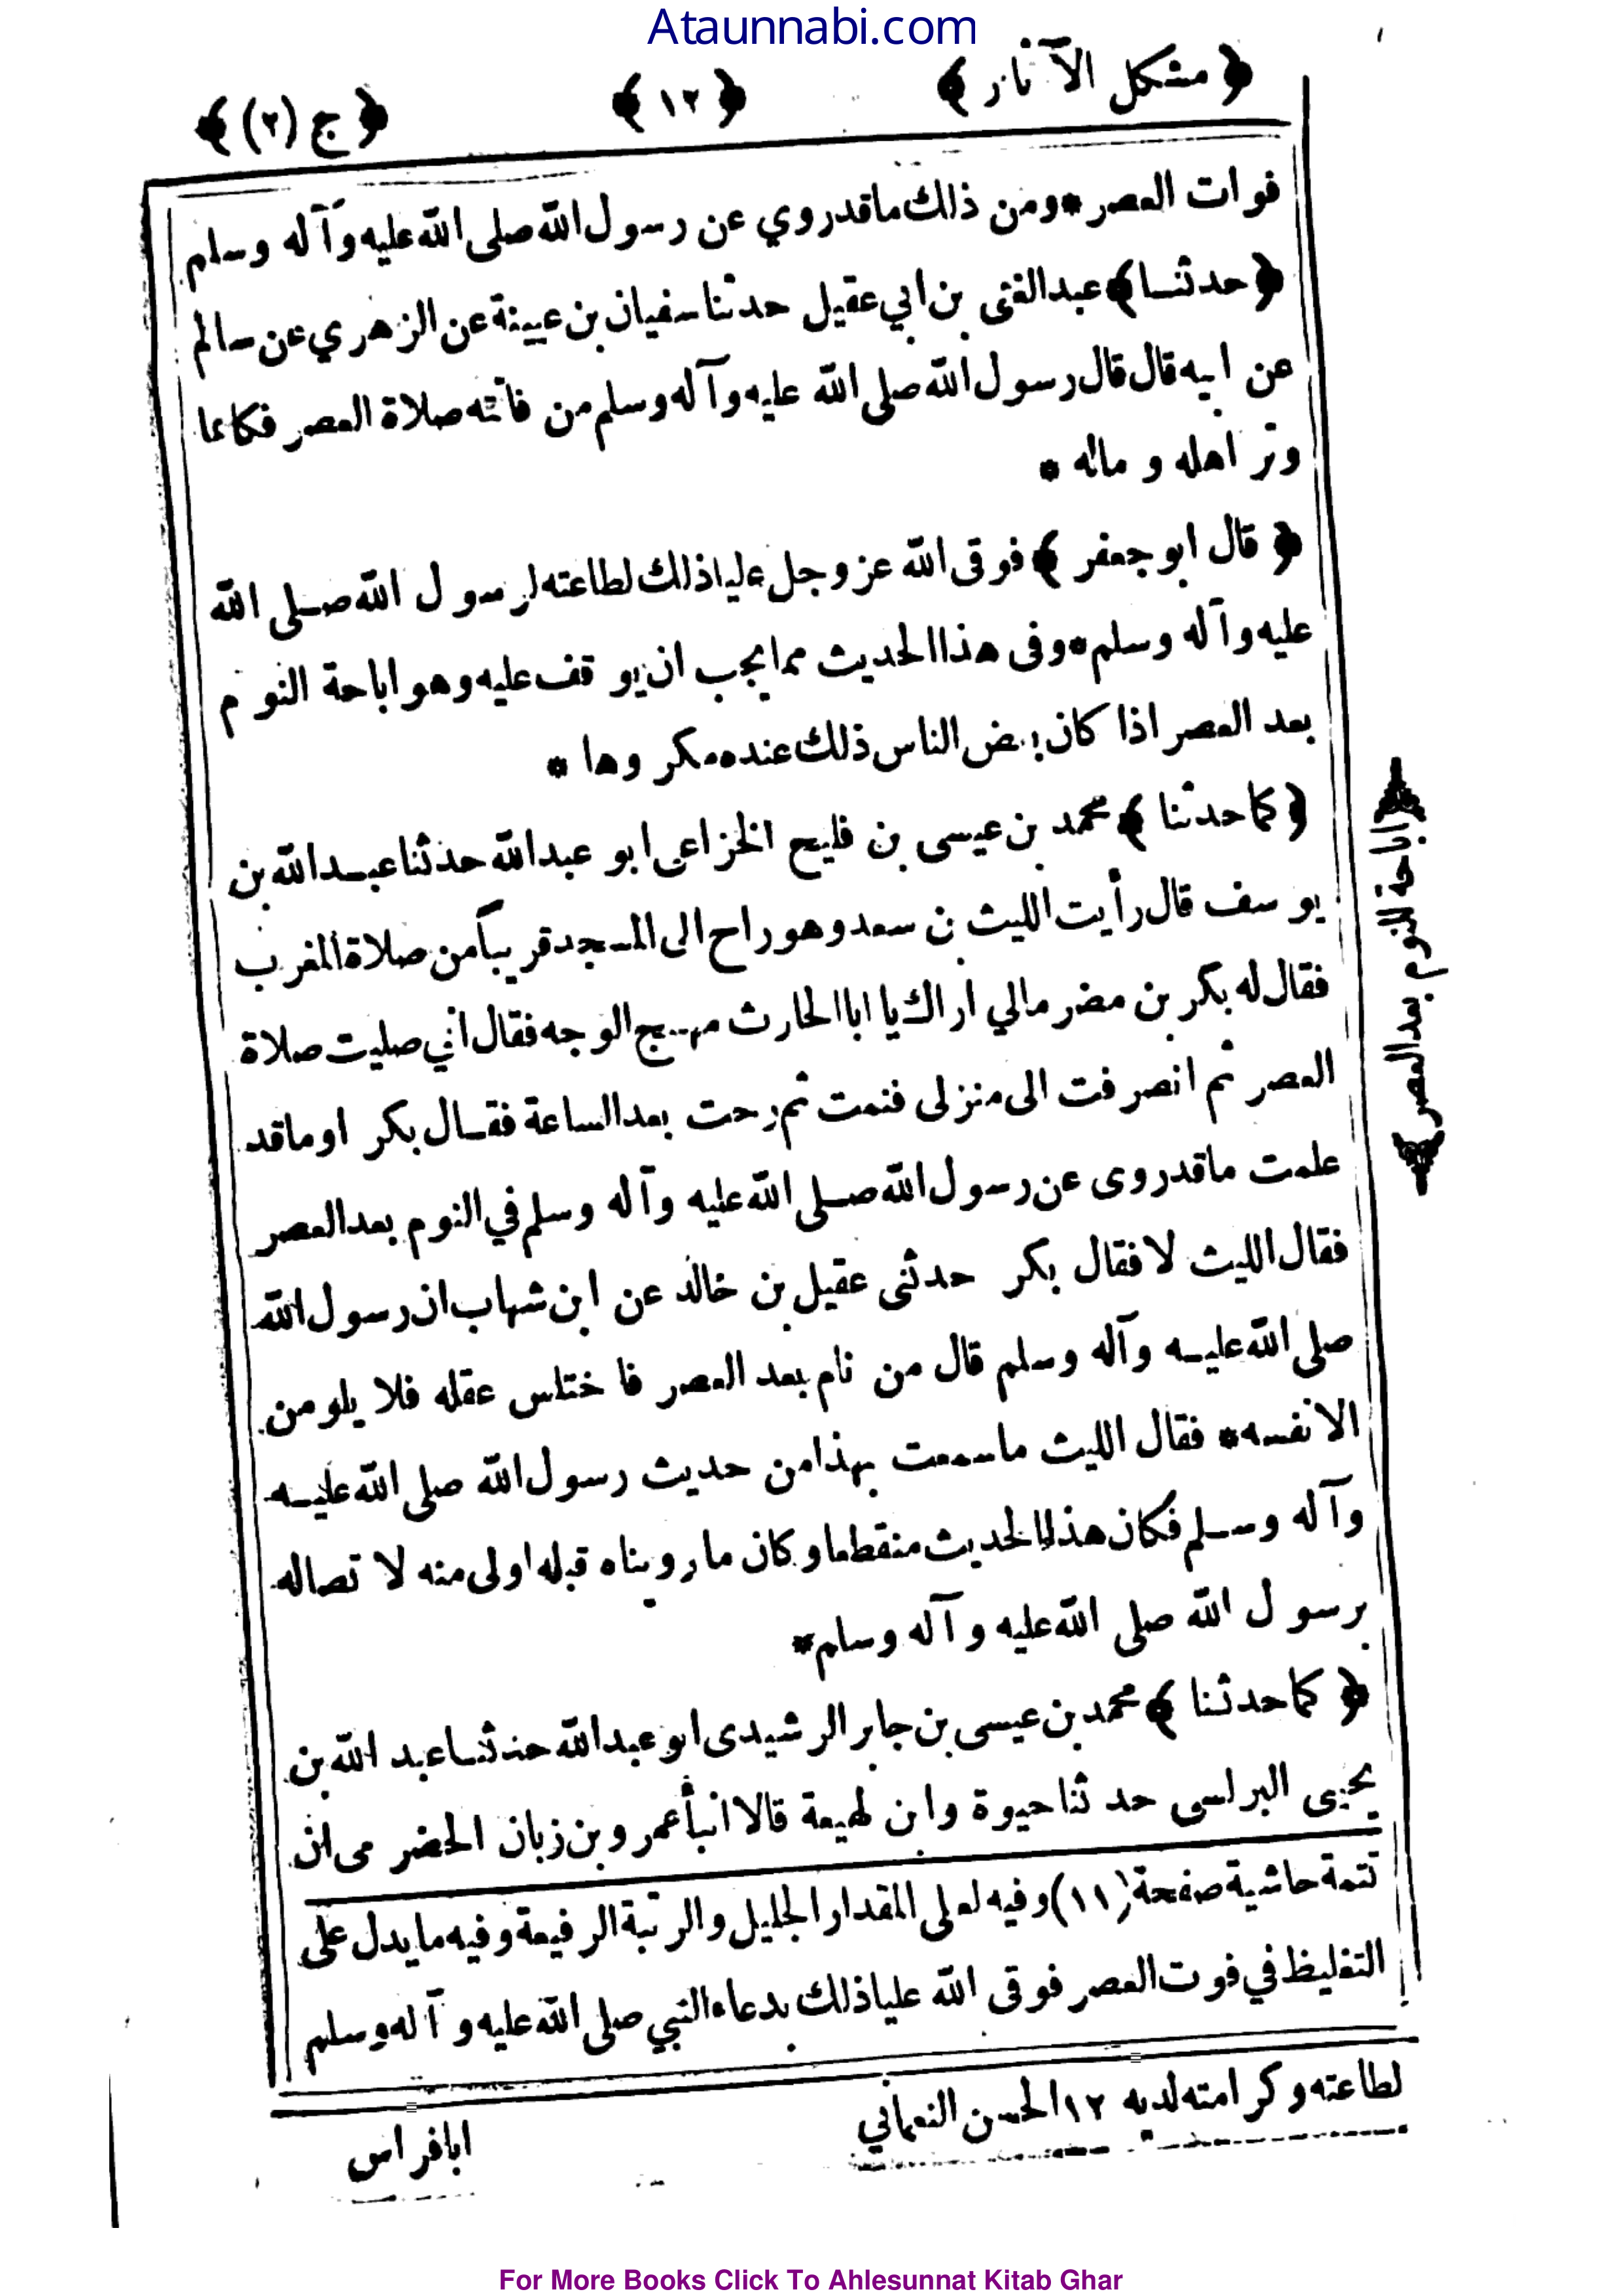 Ataunnabi.com
﴿ مشكل الآثار ﴾ ﴿ ١٢ ﴾ ﴿ ج (٢) ﴾
فوات العصر * ومن ذلك ما قدروي عن رسول الله صلى الله عليه وآله وسلم
﴿ حدثنا ﴾ عبدالغنى بن ابي عقيل حدثنا سفيان بن عيينة عن الزهري عن سالم
عن ابيه قال قال رسول الله صلى الله عليه وآله وسلم من فاتته صلاة العصر فكانما
وتر اهله و ماله *
﴿ قال ابو جعفر ﴾ فوقى الله عز وجل عليا ذلك لطاعته لرسول الله صلى الله
عليه وآله وسلم * وفى هذا الحديث مما يجب ان يوقف عليه وهو اباحة النوم
بعد العصر اذا كان بعض الناس ذلك عنده مكروها *
﴿ كما حدثنا ﴾ محمد بن عيسى بن فليح الخزاعى ابو عبدالله حدثنا عبدالله بن
يوسف قال رأيت الليث بن سعد وهو راح الى المسجد قريباً من صلاة المغرب
فقال له بكر بن مضر مالي اراك يا ابا الحارث مهيج الوجه فقال اني صليت صلاة
العصر ثم انصرفت الى منزلى فنمت ثم رحت بعد الساعة فقال بكر او ما قد
علمت ما قدروى عن رسول الله صلى الله عليه وآله وسلم في النوم بعد العصر
فقال الليث لا فقال بكر حدثنى عقيل بن خالد عن ابن شهاب ان رسول الله
صلى الله عليه وآله وسلم قال من نام بعد العصر فاختلس عقله فلا يلومن
الا نفسه * فقال الليث ما سمعت بهذا من حديث رسول الله صلى الله عليه
وآله وسلم فكان هذا الحديث منقطعا وكان ما رويناه قبله اولى منه لا تصاله
برسول الله صلى الله عليه وآله وسلم *
﴿ كما حدثنا ﴾ محمد بن عيسى بن جابر الرشيدى ابو عبدالله حدثنا عبد الله بن
يحيى البرلسى حدثنا حيوة وابن لهيعة قالا انبأ عمرو بن زبان الحضرمى ان
تتمة حاشية صفحة (١١) وفيه لعلى المقدار الجليل والرتبة الرفيعة وفيه ما يدل على
التغليظ في فوت العصر فوقى الله عليا ذلك بدعاء النبي صلى الله عليه وآله وسلم
لطاعته وكرامته لديه ١٢ الحسن النعماني
ابا فراس
﴿ اباحة النوم بعد العصر ﴾
For More Books Click To Ahlesunnat Kitab Ghar